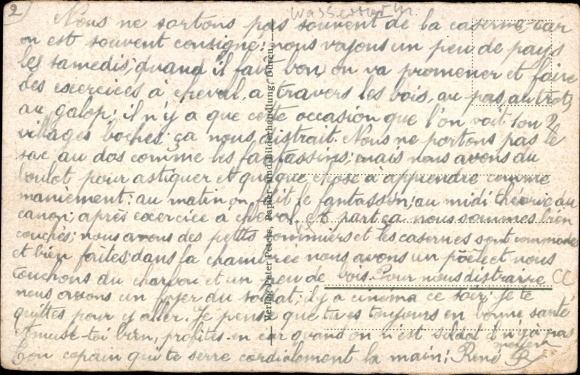 2)
Nous ne sortons pas souvent de la caserne, car
on est souvent consigné: nous voyons un peu de pays
les samedis; quand il fait bon on va promener et faire
des exercices à cheval, à travers les bois, au pas, au trot,
au galop; il n'y a que cette occasion que l'on voit
villages boches; ça nous distrait. Nous ne portons pas le
sac au dos comme les fantassins; mais nous avons du
boulot pour astiquer et quelque chose à apprendre comme
maniement; au matin on fait le fantassin; au midi théorie du
canon; après exercice à cheval, et part ça nous sommes bien
couchés; nous avons des petits sommiers et les casernes sont commodes
et bien faites; dans la chambrée nous avons un poêle et nous
touchons du charbon et un peu de bois. Pour nous distraire
nous avons un foyer du soldat; il y a cinéma ce soir. Je te
quittes pour y aller. Je pense que tu es toujours en bonne santé
Amuse-toi bien; profites-en car quand on n'est soldat il n'y a pas
moyen
Ton copain qui te serre cordialement la main; René
Verlag Peter Peters, Papier- und Buchhandlung, Düren.